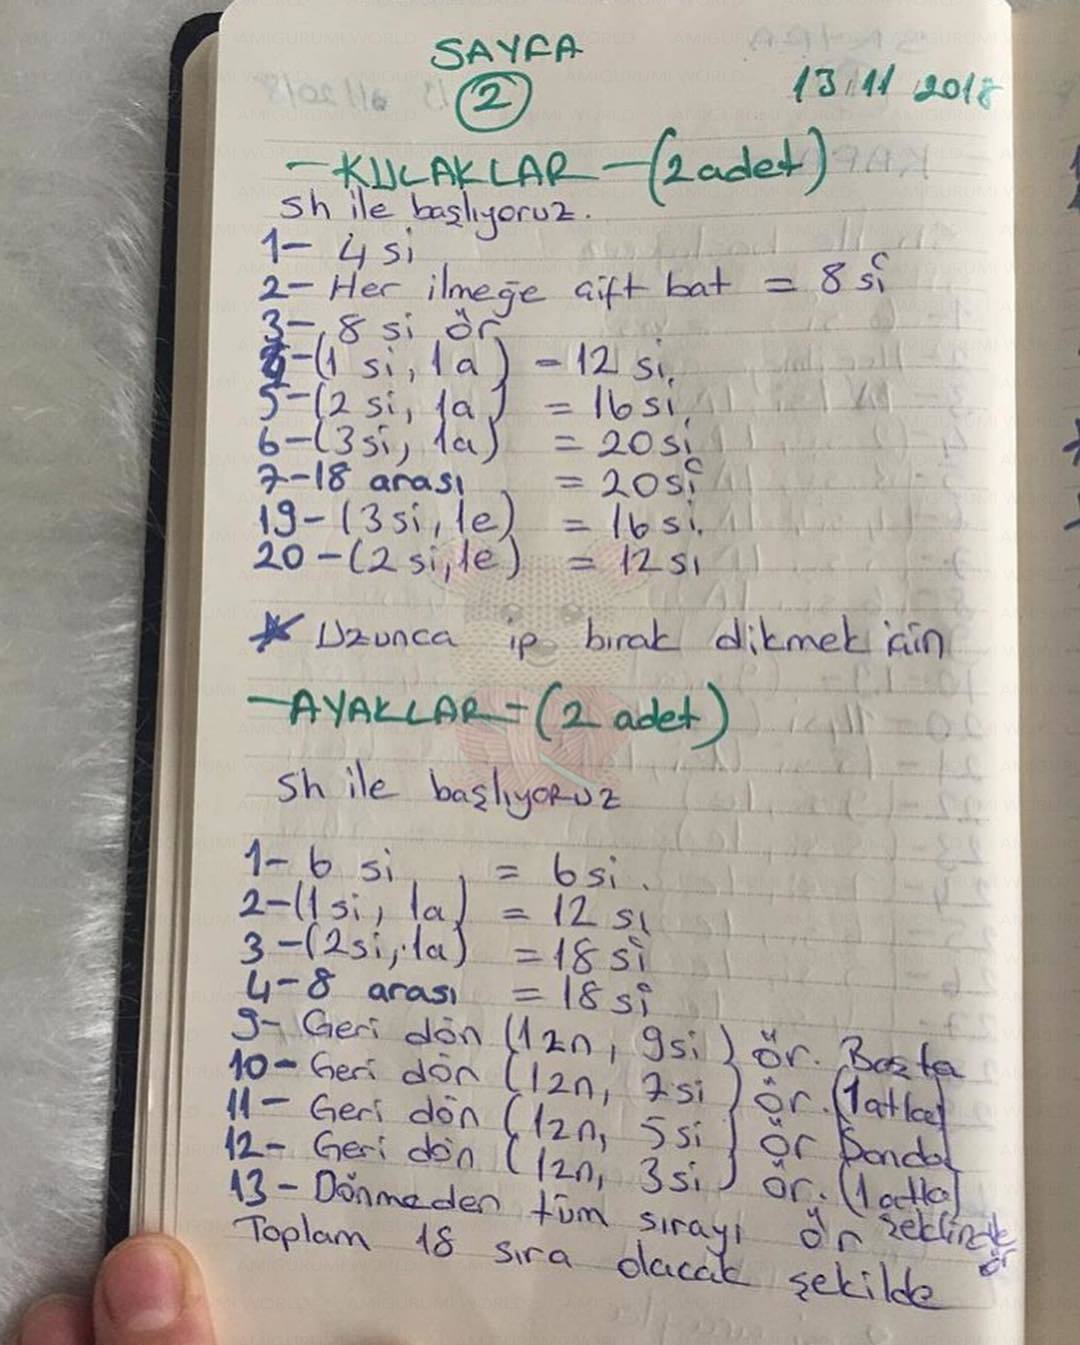 SAYFA
2
13.11.2018
-KULAKLAR-(2 adet)
Sh ile başlıyoruz.
1- 4 si
2- Her ilmeğe çift bat = 8 si
3- 8 si ör
4-(1 si, 1a) - 12 si.
5-(2 si, 1a) = 16 si
6-(3si, 1a) = 20si
7-18 arası = 20si
19-(3si, 1e) = 16 si.
20-(2 si, 1e) = 12 si
* Uzunca ip bırak dikmek için
-AYAKLAR-(2 adet)
Sh ile başlıyoruz
1- 6 si = 6si.
2-(1si, 1a) = 12 si
3-(2si, 1a) = 18 si
4-8 arası = 18 si
9- Geri dön (1zn, 9si) ör. Başta
10- Geri dön (1zn, 7si) ör. (1atla)
11- Geri dön (1zn, 5si) ör Sonda
12- Geri dön (1zn, 3si) ör. (1atla)
13- Dönmeden tüm sırayı ör şeklinde ör
Toplam 18 sıra olacak şekilde
AMIGURUMI WORLD